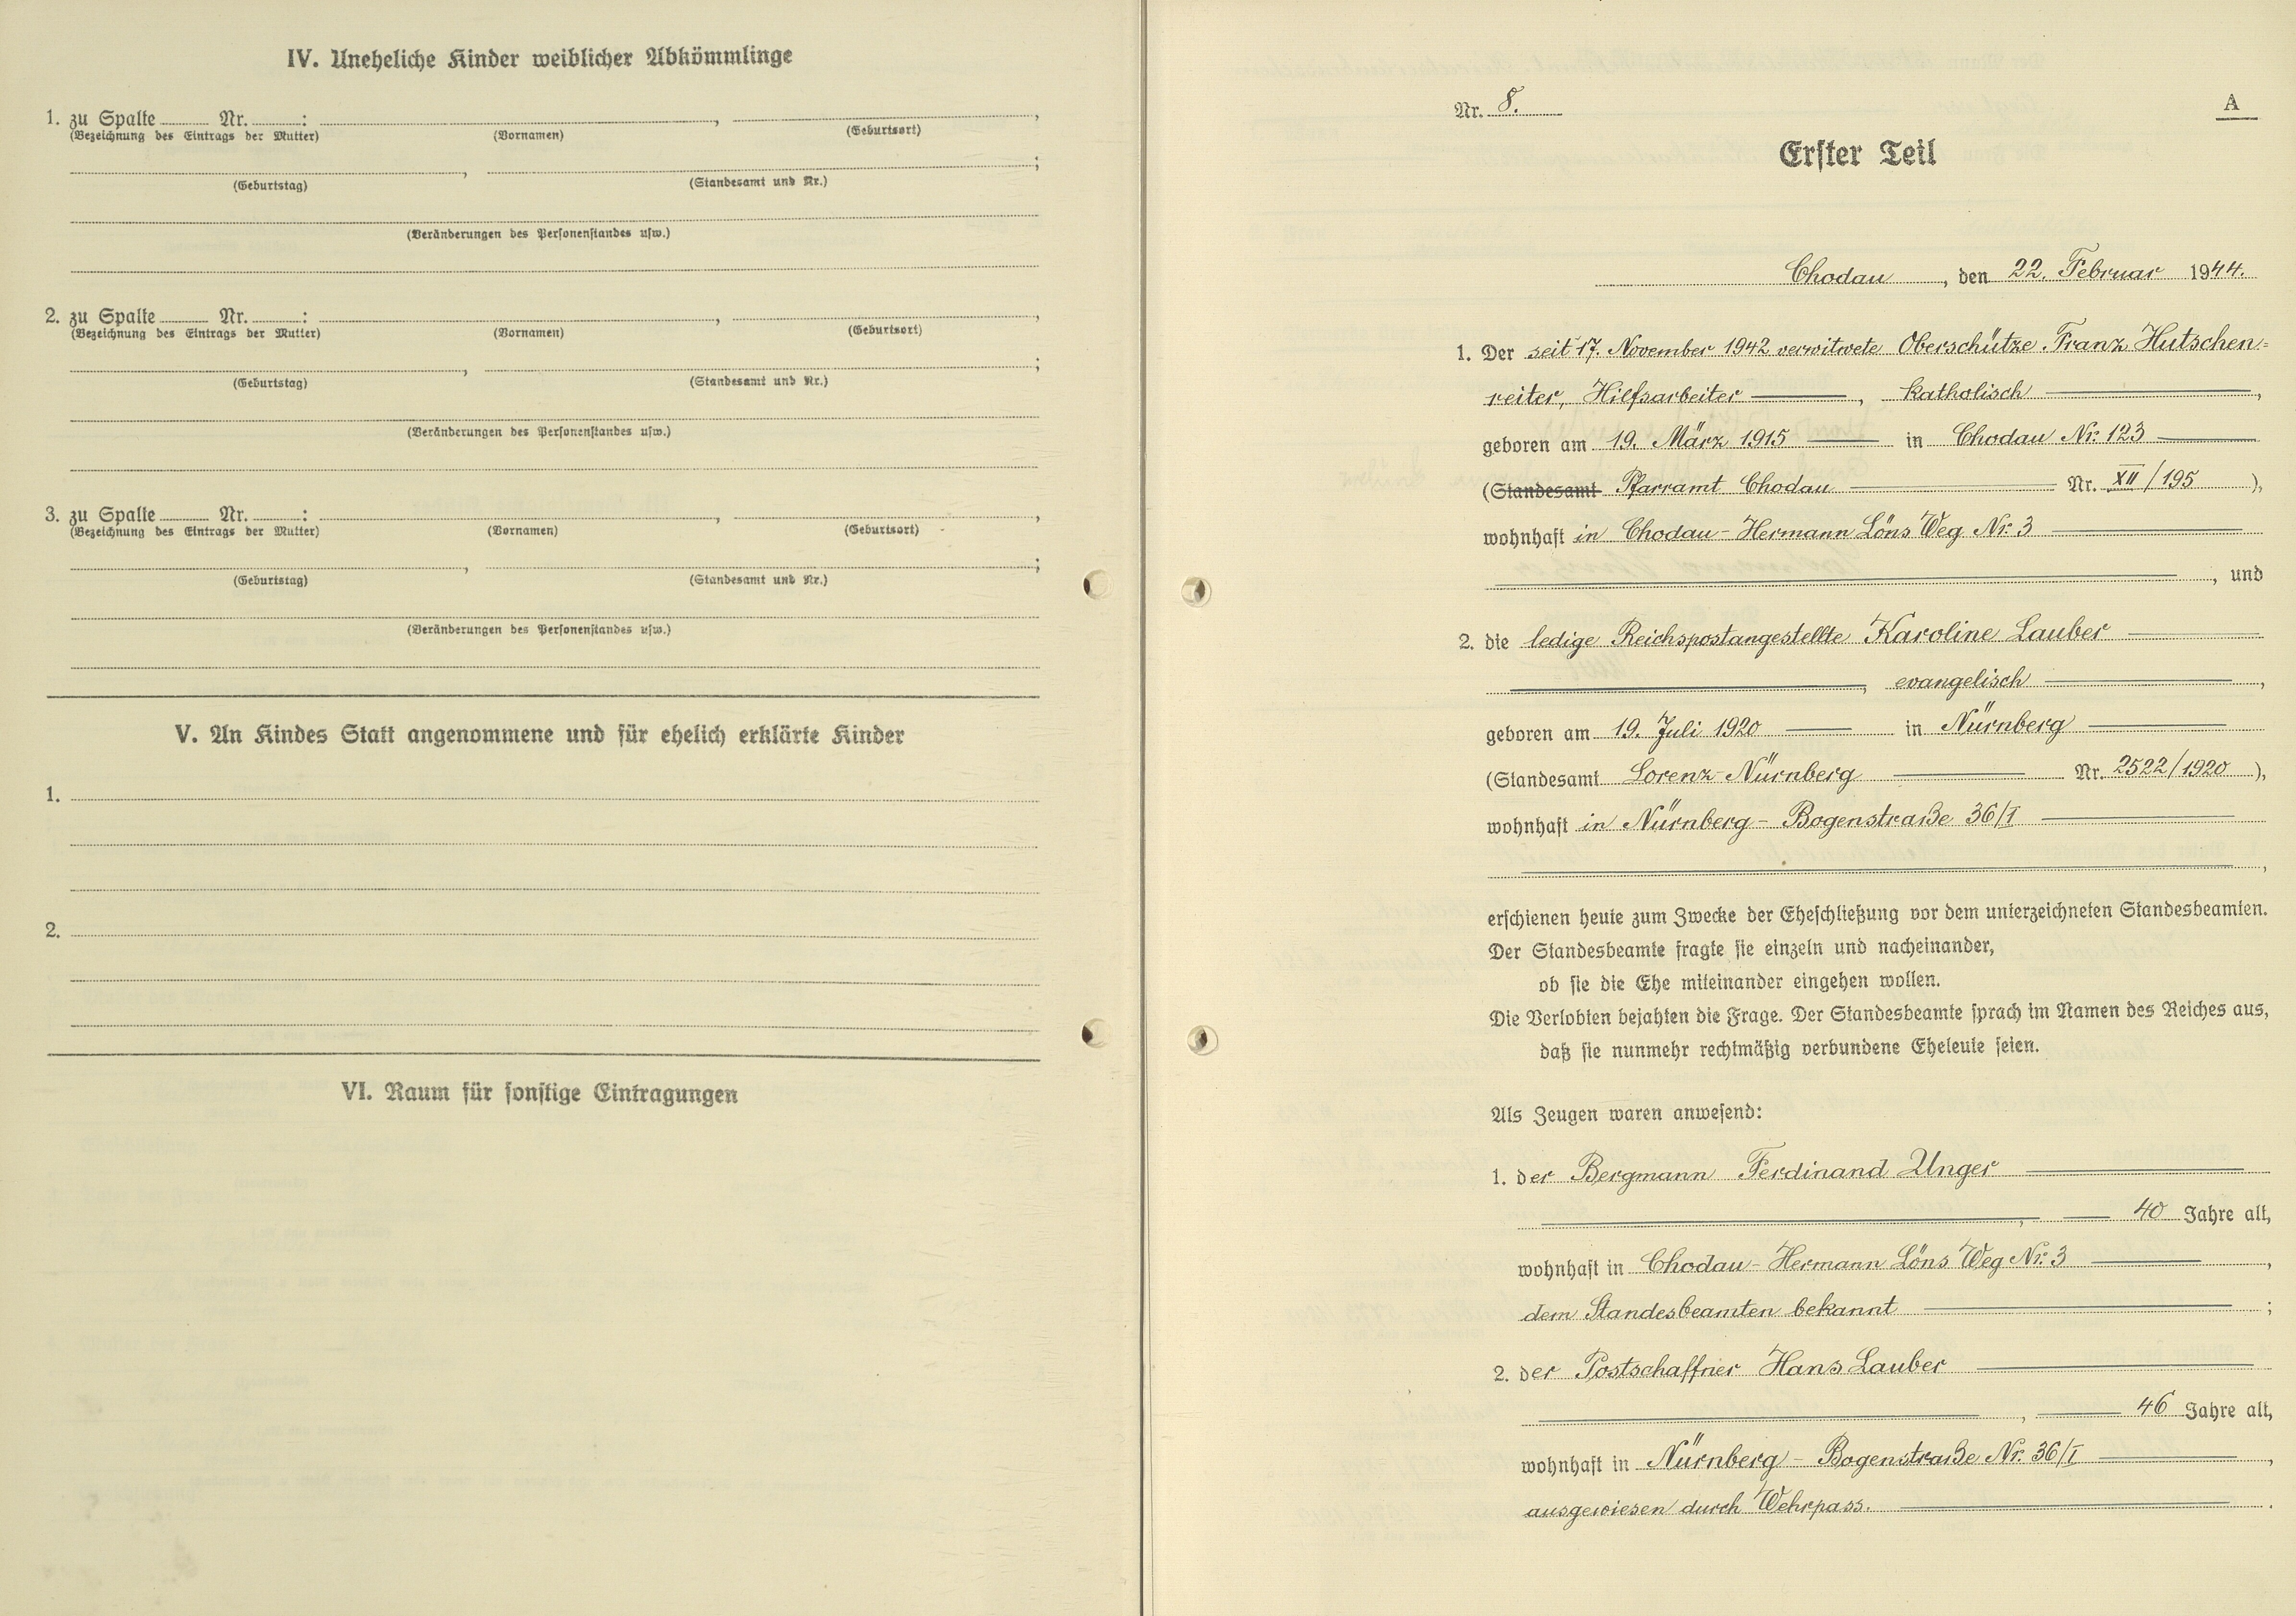 IV. Uneheliche Kinder weiblicher Abkömmlinge
1. zu Spalte Nr. : , ,
(Bezeichnung des Eintrags der Mutter) (Vornamen) (Geburtsort)
, ;
(Geburtstag) (Standesamt und Nr.)
(Veränderungen des Personenstandes usw.)
2. zu Spalte Nr. : , ,
(Bezeichnung des Eintrags der Mutter) (Vornamen) (Geburtsort)
, ;
(Geburtstag) (Standesamt und Nr.)
(Veränderungen des Personenstandes usw.)
3. zu Spalte Nr. : , ,
(Bezeichnung des Eintrags der Mutter) (Vornamen) (Geburtsort)
, ;
(Geburtstag) (Standesamt und Nr.)
(Veränderungen des Personenstandes usw.)
V. An Kindes Statt angenommene und für ehelich erklärte Kinder
1.
2.
VI. Raum für sonstige Eintragungen
Nr. 8. A
Erster Teil
Chodau, den 22. Februar 1944.
1. Der seit 17. November 1942 verwitwete Oberschütze Franz Hutschen-
reiter, Hilfsarbeiter, katholisch,
geboren am 19. März 1915 in Chodau Nr. 123
(Standesamt Pfarramt Chodau Nr. XII/195),
wohnhaft in Chodau - Hermann Löns Weg Nr. 3
, und
2. die ledige Reichspostangestellte Karoline Lauber
, evangelisch,
geboren am 19. Juli 1920 in Nürnberg
(Standesamt Lorenz-Nürnberg Nr. 2522/1920),
wohnhaft in Nürnberg - Bogenstraße 36/I
,
erschienen heute zum Zwecke der Eheschließung vor dem unterzeichneten Standesbeamten.
Der Standesbeamte fragte sie einzeln und nacheinander,
ob sie die Ehe miteinander eingehen wollen.
Die Verlobten bejahten die Frage. Der Standesbeamte sprach im Namen des Reiches aus,
daß sie nunmehr rechtmäßig verbundene Eheleute seien.
Als Zeugen waren anwesend:
1. der Bergmann Ferdinand Unger
, 40 Jahre alt,
wohnhaft in Chodau - Hermann Löns Weg Nr. 3,
dem Standesbeamten bekannt;
2. der Postschaffner Hans Lauber
, 46 Jahre alt,
wohnhaft in Nürnberg - Bogenstraße Nr. 36/I,
ausgewiesen durch Wehrpass.